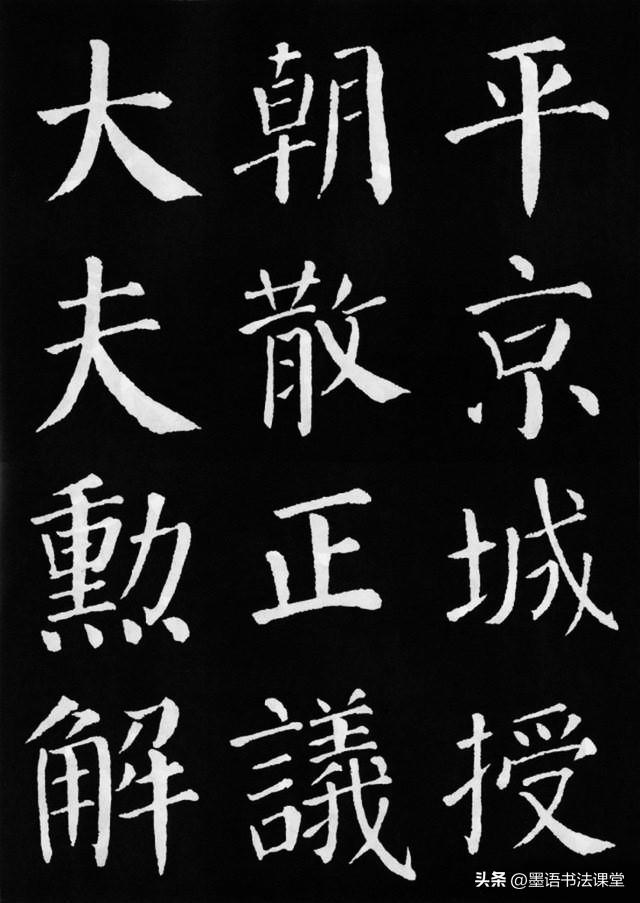 平京城授
朝散正議
大夫勳解
头条 @墨语书法课堂